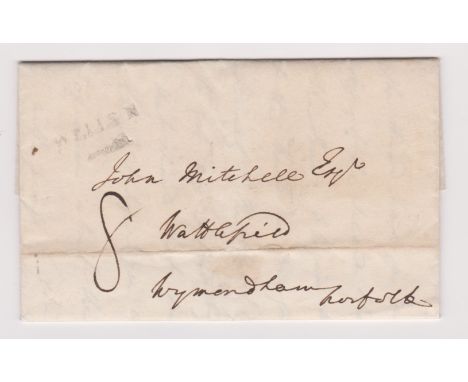 John Mitchell Esqr
8
Wattlefield
Wymondham Norfolk